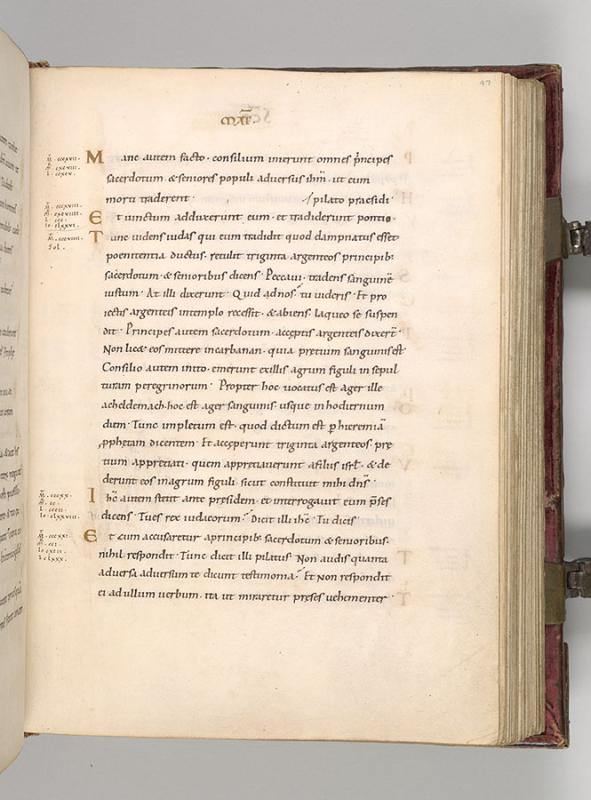 47
MAT
Mane autem facto · consilium inierunt omnes p̄ncipes
sacerdotum · & seniores populi adversus ih̄m · ut eum
morti traderent · / pilato praesidi ·
Et iunctum adduxerunt eum · et tradiderunt pontio ·
Tunc videns iudas qui eum tradidit quod dampnatus esset ·
poenitentia ductus · retulit triginta argenteos principib;
sacerdotum · & senioribus dicens · Peccavi · tradens sanguinē
iustum · At illi dixerunt · Quid adnos · tu videris · Et pro
iectis argenteis intemplo recessit · & abiens · laqueo se suspen
dit · Principes autem sacerdotum · acceptis argenteis dixert̄ ·
Non lic& eos mittere incarbanan · quia pretium sanguinis est ·
Consilio autem inito · emerunt exillis agrum figuli in sepul
turam peregrinorum · Propter hoc vocatus est ager ille
acheldemach · hoc est ager sanguinis · usque in hodiernum
diem · Tunc impletum est · quod dictum est p hieremiā
pphetam dicentem · Et acceperunt triginta argenteos · pre
tium appretiati · quem appretiaverunt afiliis isrl̄ · & de
derunt eos inagrum figuli · sicut constituit mihi dn̄s ·
Ih̄c autem stetit ante presidem · et interrogavit eum p̄ses
dicens · Tu es rex iudaeorum · Dicit illi ih̄c · Tu dicis ·
Et cum accusaretur aprincipib; sacerdotum & senioribus ·
nihil respondit · Tunc dicit illi pilatus · Non audis quanta
adversa adversum te dicunt testimonia · Et non respondit
ei ad ullum verbum · ita ut miraretur preses vehementer ·